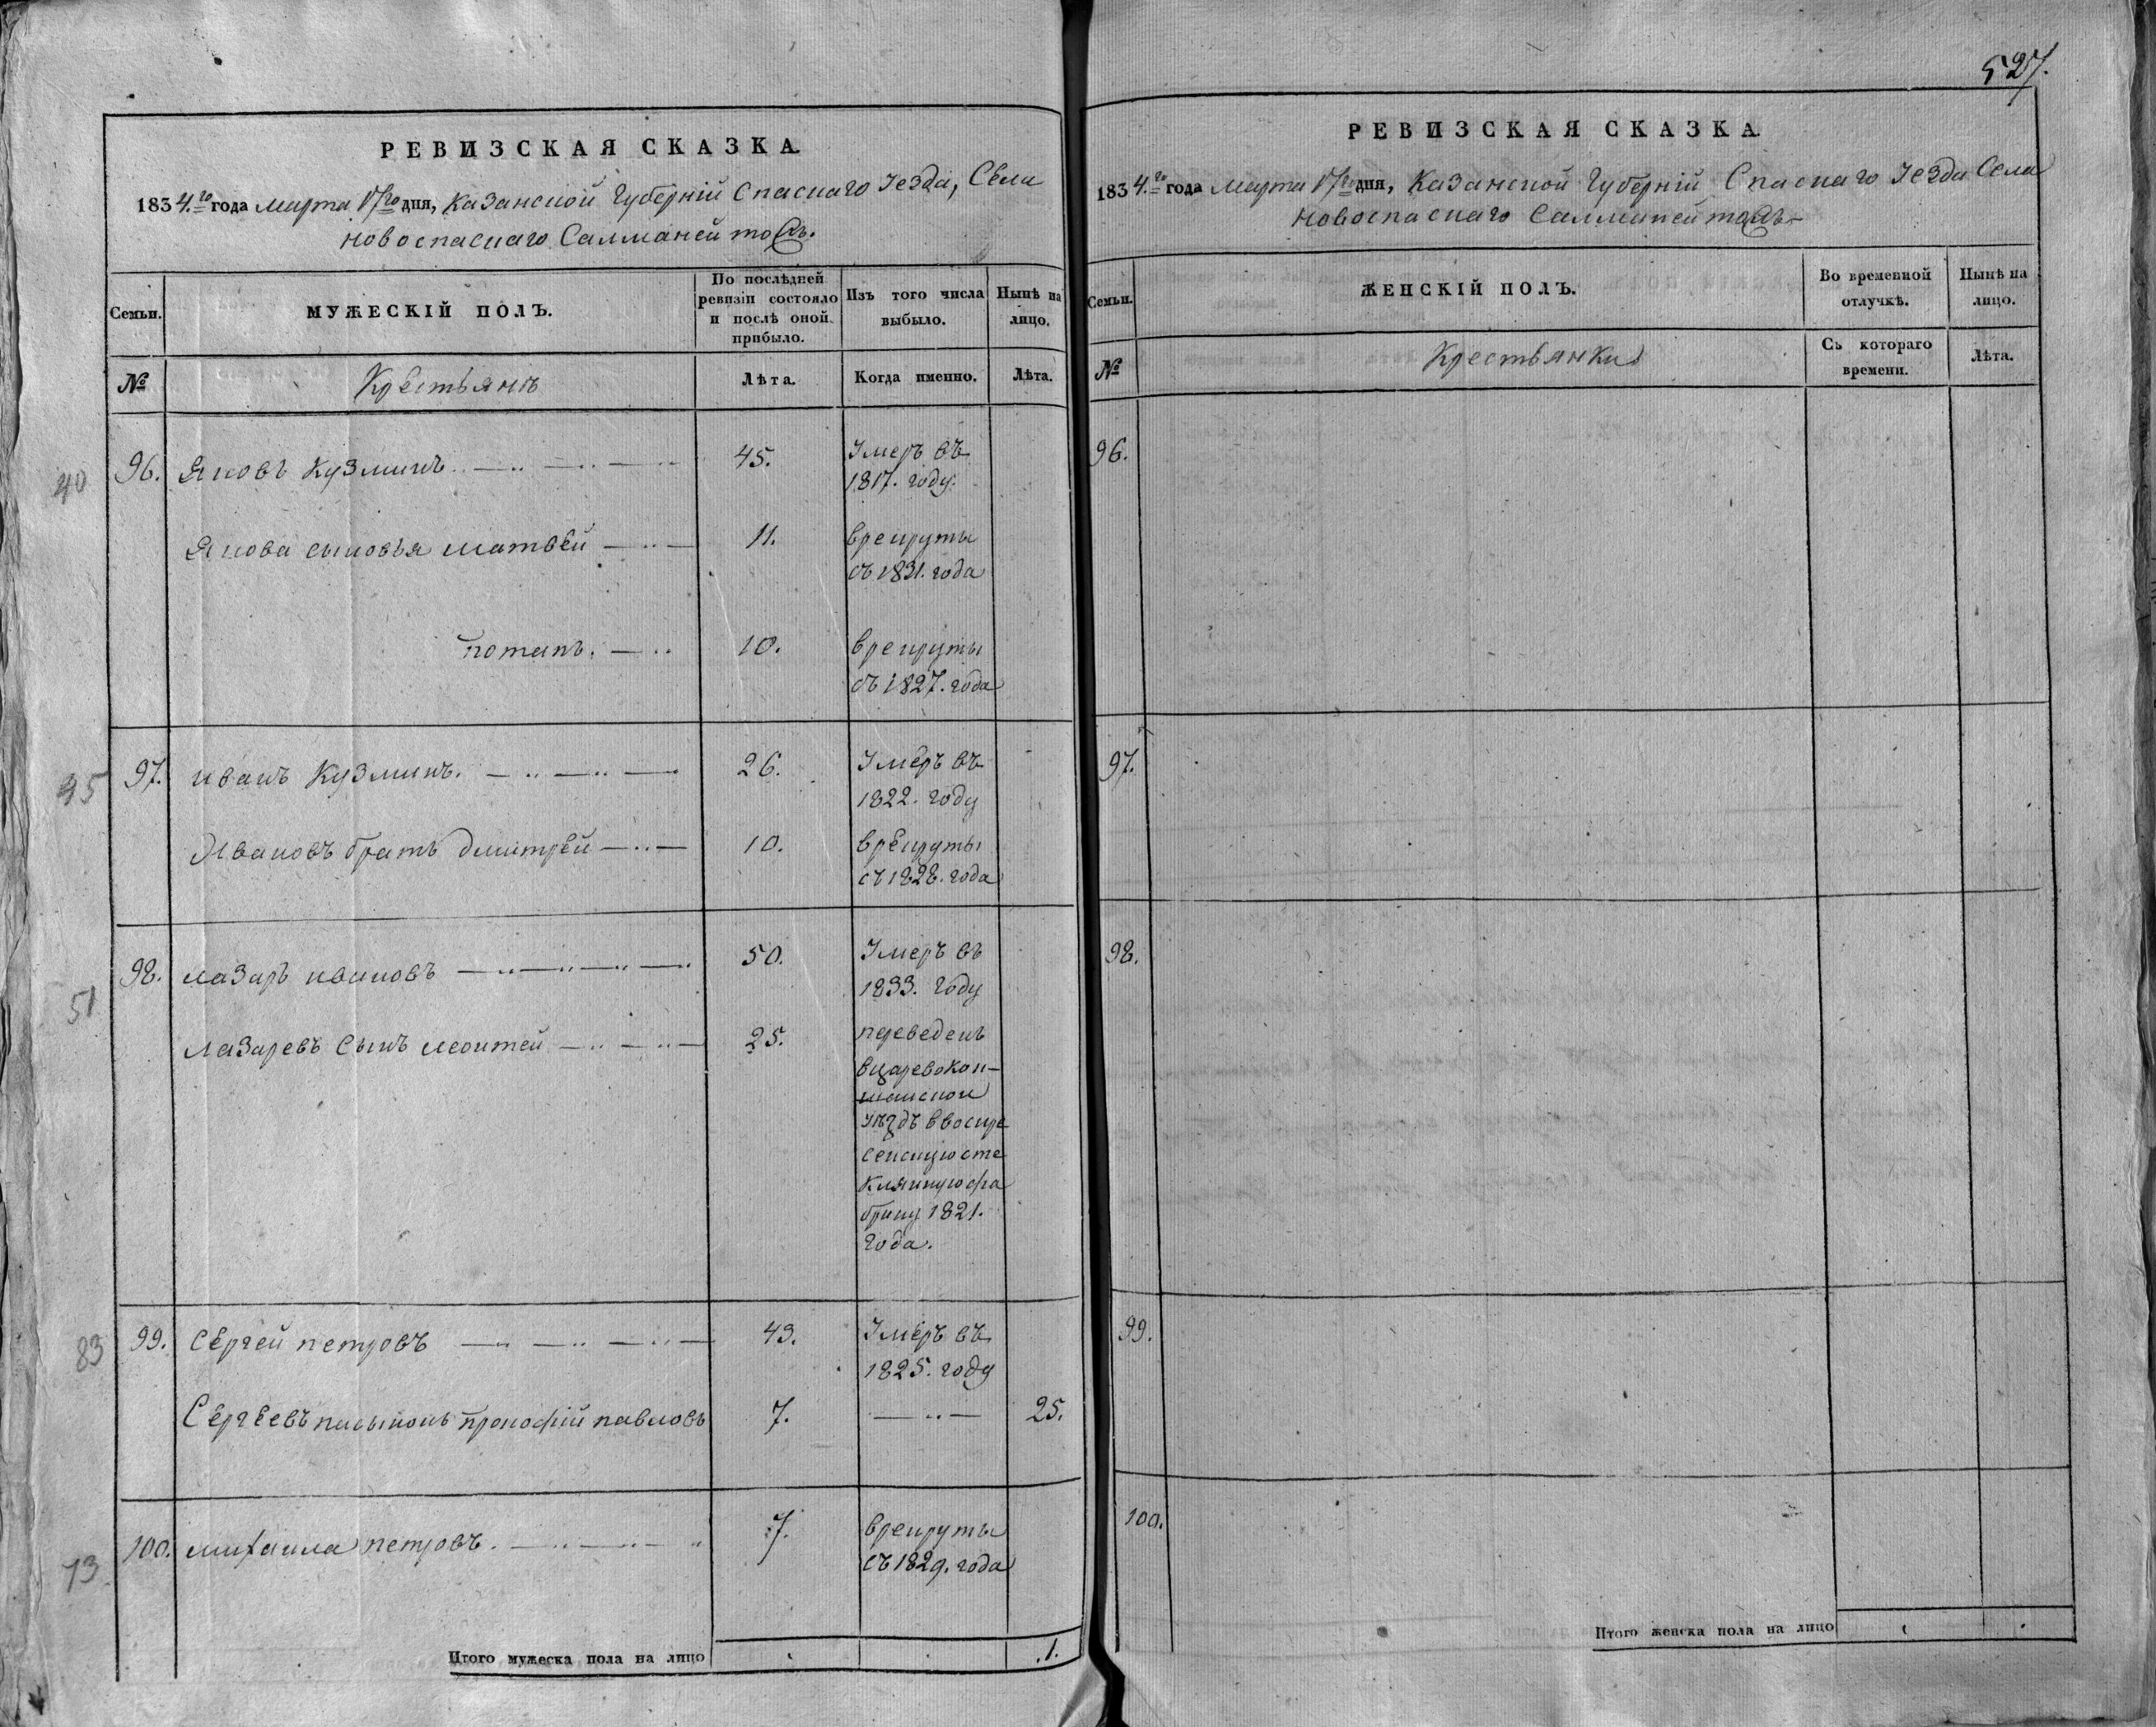 527.
РЕВИЗСКАЯ СКАЗКА.
1834.го года марта 17го дня, Казанской Губерніи Спаскаго Уезда, Села
новоспаскаго Салманей тожъ.
Семьи.
МУЖЕСКІЙ ПОЛЪ.
По послѣдней
ревизіи состояло
и послѣ оной
прибыло.
Изъ того числа
выбыло.
Нынѣ на
лицо.
№
Крестьянъ
Лѣта.
Когда именно.
Лѣта.
40
96. Яковъ Кузминъ. 45. Умеръ въ
1817. году.
Якова сыновья матвѣй 11. врекруты
съ 1831. года
потапъ. 10. врекруты
съ 1827. года
45
97. иванъ Кузминъ. 26. Умеръ въ
1822. году
Ивановъ братъ дмитрей 10. врекруты
съ 1828. года
51
98. лазарь ивановъ 50. Умеръ въ
1833. году
Лазаревъ сынъ леонтей 25. переведенъ
вцаревокок-
шаиской
уѣздъ ввоскре
сенскую сте
кляиную фа
брику 1821.
года.
83
99. Сергей петровъ 43. Умеръ въ
1825. году
Сергеевъ пасынокъ прокофій павловъ 7. 25.
73
100. михаила петровъ. 7. врекруты
съ 1829. года
Итого мужеска пола на лицо 1.
РЕВИЗСКАЯ СКАЗКА.
1834.го года марта 17го дня, Казанской Губерніи Спаскаго Уезда Села
новоспаскаго Салманей тожъ
Семьи.
ЖЕНСКІЙ ПОЛЪ.
Во временной
отлучкѣ.
Нынѣ на
лицо.
№
Крестьянки
Съ котораго
времени.
Лѣта.
96.
97.
98.
99.
100.
Итого женска пола на лицо